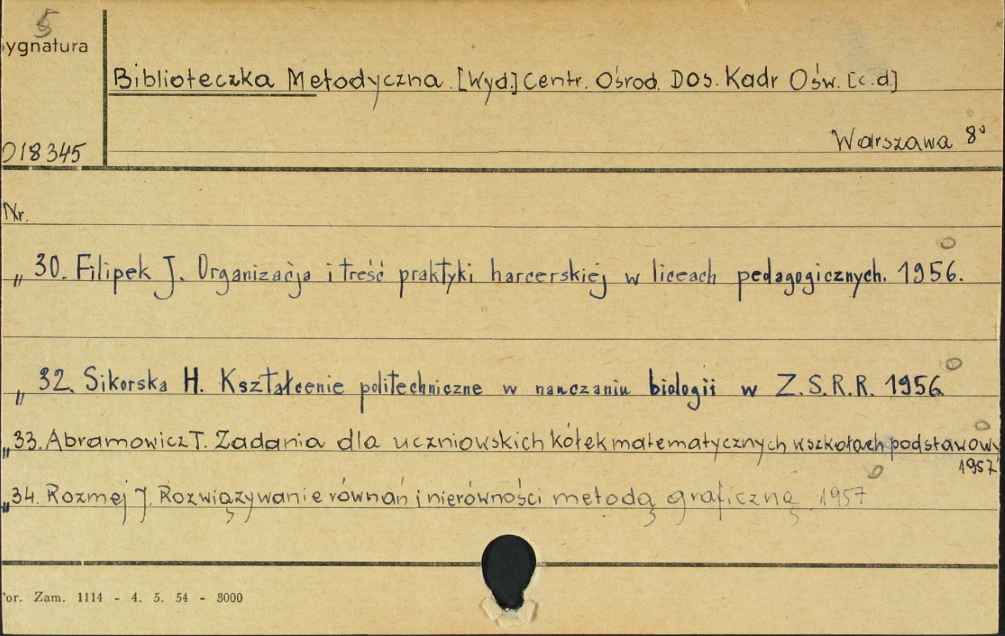 5
ygnatura
Biblioteczka Metodyczna. [Wyd.] Centr. Ośrod. Dos. Kadr Ośw. [c.d]
018345
Warszawa 8°
Nr.
„ 30. Filipek J. Organizacja i treść praktyki harcerskiej w liceach pedagogicznych. 1956.
„ 32. Sikorska H. Kształcenie politechniczne w nanczaniu biologii w Z.S.R.R. 1956.
„ 33. Abramowicz T. Zadania dla uczniowskich kółek matematycznych w szkołach podstawowy
1957
„ 34. Rozmej J. Rozwiązywanie równań i nierówności metodą graficzną 1957
or. Zam. 1114 - 4. 5. 54 - 3000